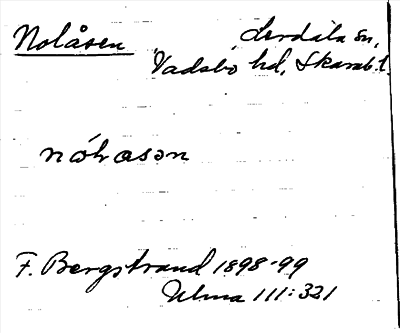 Nolåsen Lerdala sn,
Vadsbo hd, Skarab. l.
nólꞷsən
F. Bergstrand 1898-99
Ulma 111:321